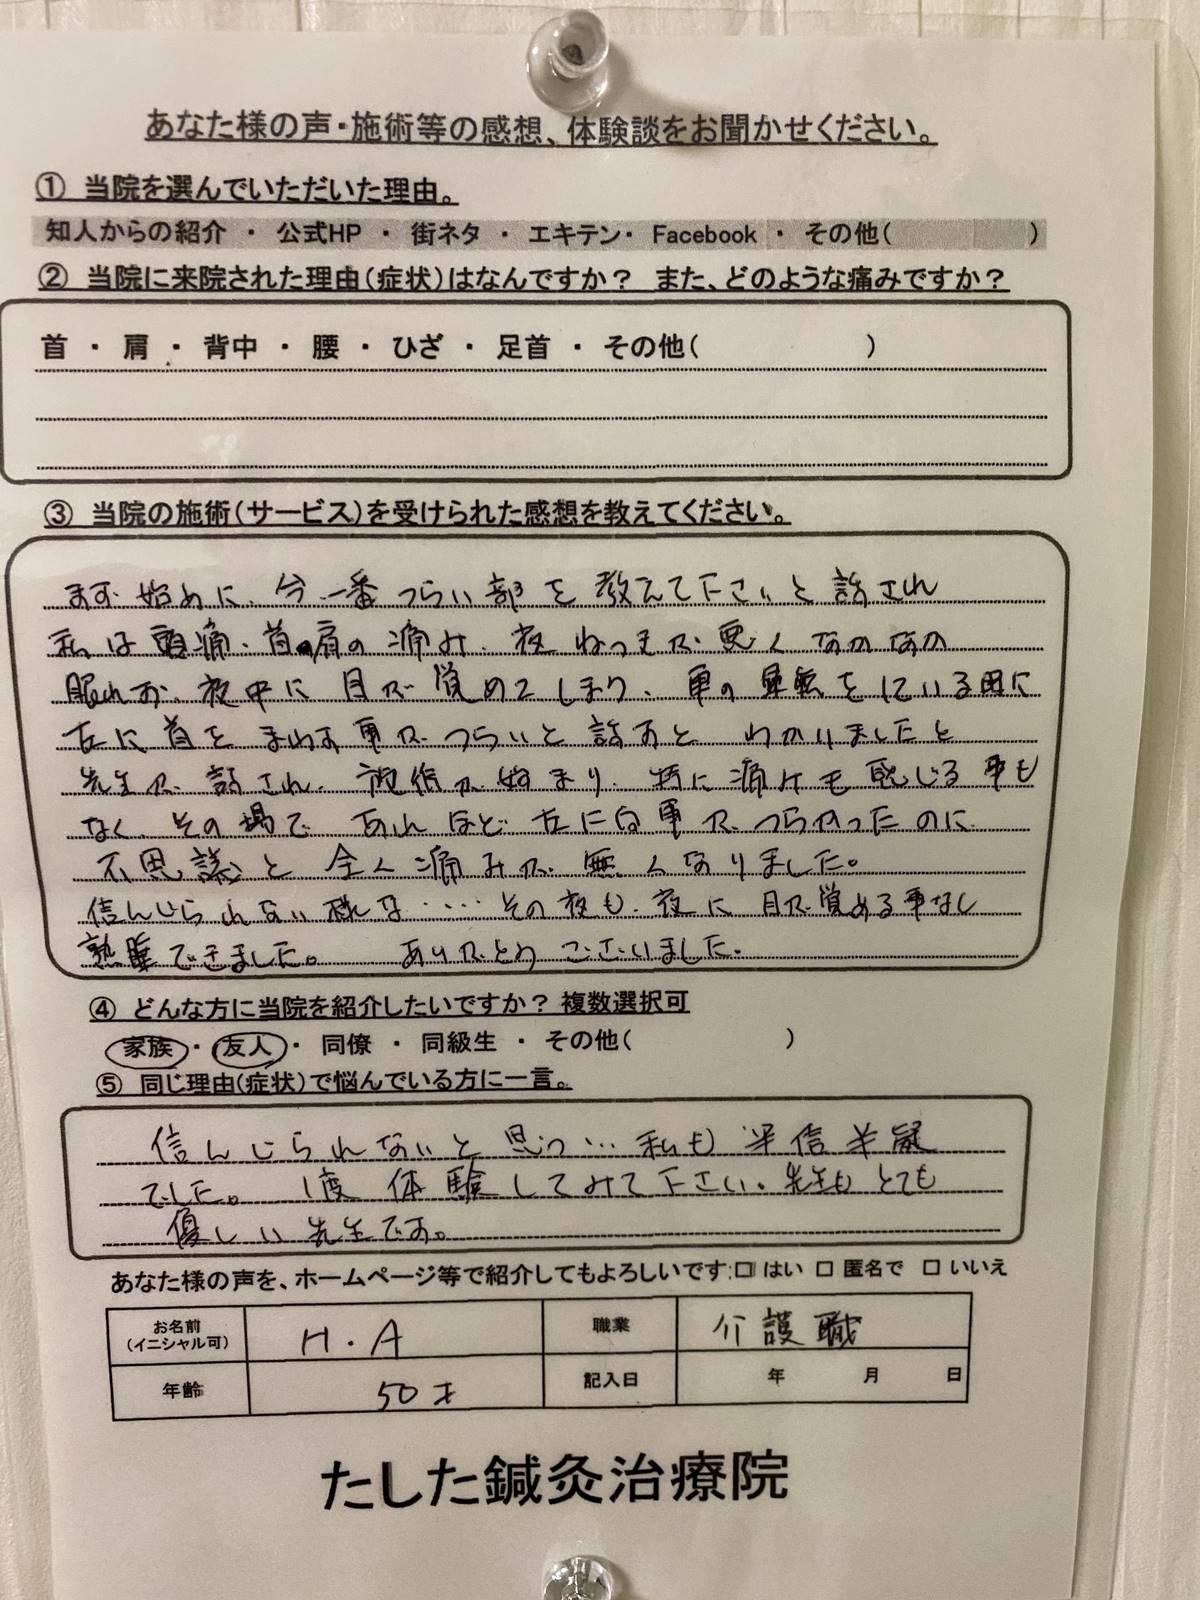 あなた様の声・施術等の感想、体験談をお聞かせください。
① 当院を選んでいただいた理由。
知人からの紹介 ・ 公式HP ・ 街ネタ ・ エキテン・ Facebook ・ その他( )
② 当院に来院された理由(症状)はなんですか？ また、どのような痛みですか？
首 ・ 肩 ・ 背中 ・ 腰 ・ ひざ ・ 足首 ・ その他( )
③ 当院の施術(サービス)を受けられた感想を教えてください。
まず始めに、今一番つらい部を教えて下さいと話され
私は頭痛・首・肩の痛み、夜ねつきが悪くなかなか
眠れず、夜中に目が覚めてしまう、車の運転をしている時に
左に首をまわす事がつらいと話すと わかりましたと
先生が話され、施術が始まり、特に痛みも感じる事も
なく、その場で あれほど左に向く事がつらかったのに
不思議と全く痛みが無くなりました。
信んじられない様な‥‥その夜も、夜に目が覚める事なし
熟睡できました。 ありがとうございました。
④ どんな方に当院を紹介したいですか？ 複数選択可
家族・ 友人 ・ 同僚 ・ 同級生 ・ その他( )
⑤ 同じ理由(症状)で悩んでいる方に一言。
信んじられないと思う…私も半信半疑
でした。 1度体験してみて下さい。先生もとても
優しい先生です。
あなた様の声を、ホームページ等で紹介してもよろしいです:□ はい □ 匿名で □ いいえ
お名前 (イニシャル可) H.A 職業 介護職
年齢 50才 記入日 年 月 日
たした鍼灸治療院